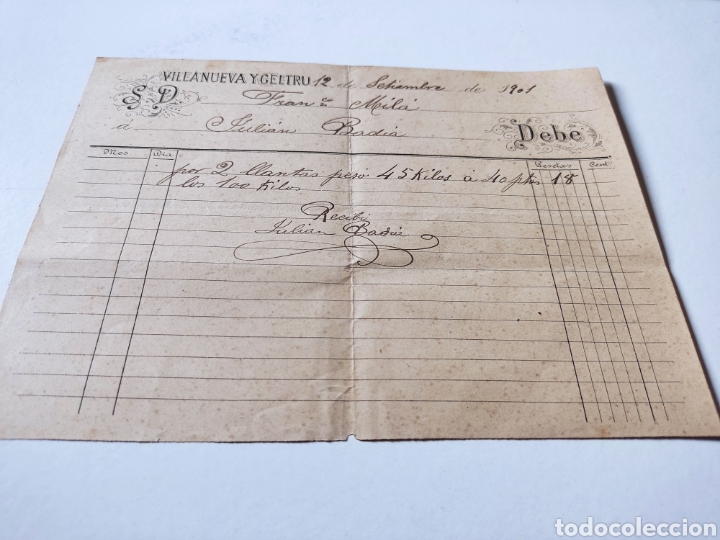 VILLANUEVA Y GELTRU 12 de Setiembre de 1901
S. D. Fran.co Milá
á Julián Badia Debe
Mes Dia Pesetas Cent
por 2 llantas peso 45 Kilos á 40 ptas 18
los 100 Kilos
Recibí
Julian Badia
todocoleccion